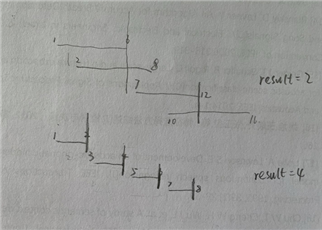 1 6
2 8
result=2
7 12
10 11
1 2
3 4
5 6
result=4
7 8